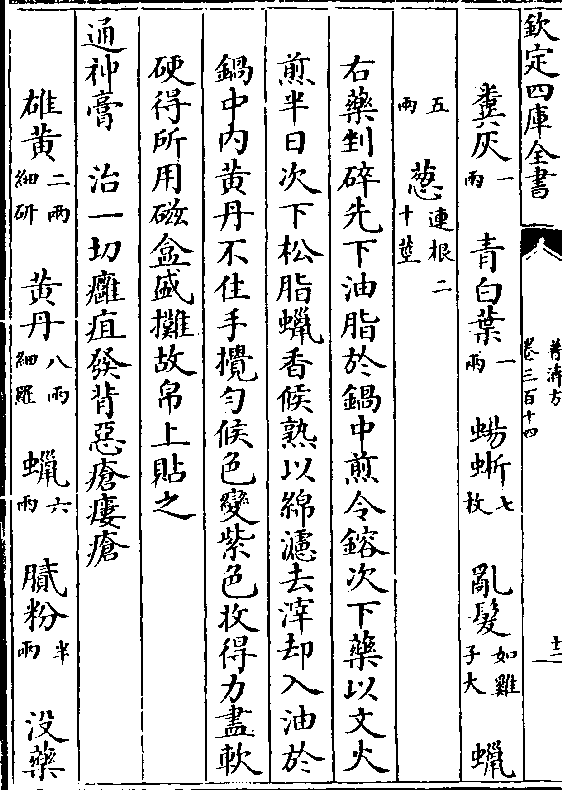 欽定四庫全書
普濟方
卷三百十四
糞灰一兩 青白葉一兩 蜴蜥七枚 亂髮如雞子大 蠟
五兩 葱連根二十莖
右藥剉碎先下油脂於鍋中煎令鎔次下藥以文火
煎半日次下松脂蠟香候熟以綿濾去滓却入油於
鍋中内黄丹不住手攪匀候色變紫色收得力盡軟
硬得所用磁盒盛攤故帛上貼之
通神膏 治一切癰疽發背惡瘡瘻瘡
雄黄二兩細研 黄丹八兩細羅 蠟六兩 膩粉半兩 没藥